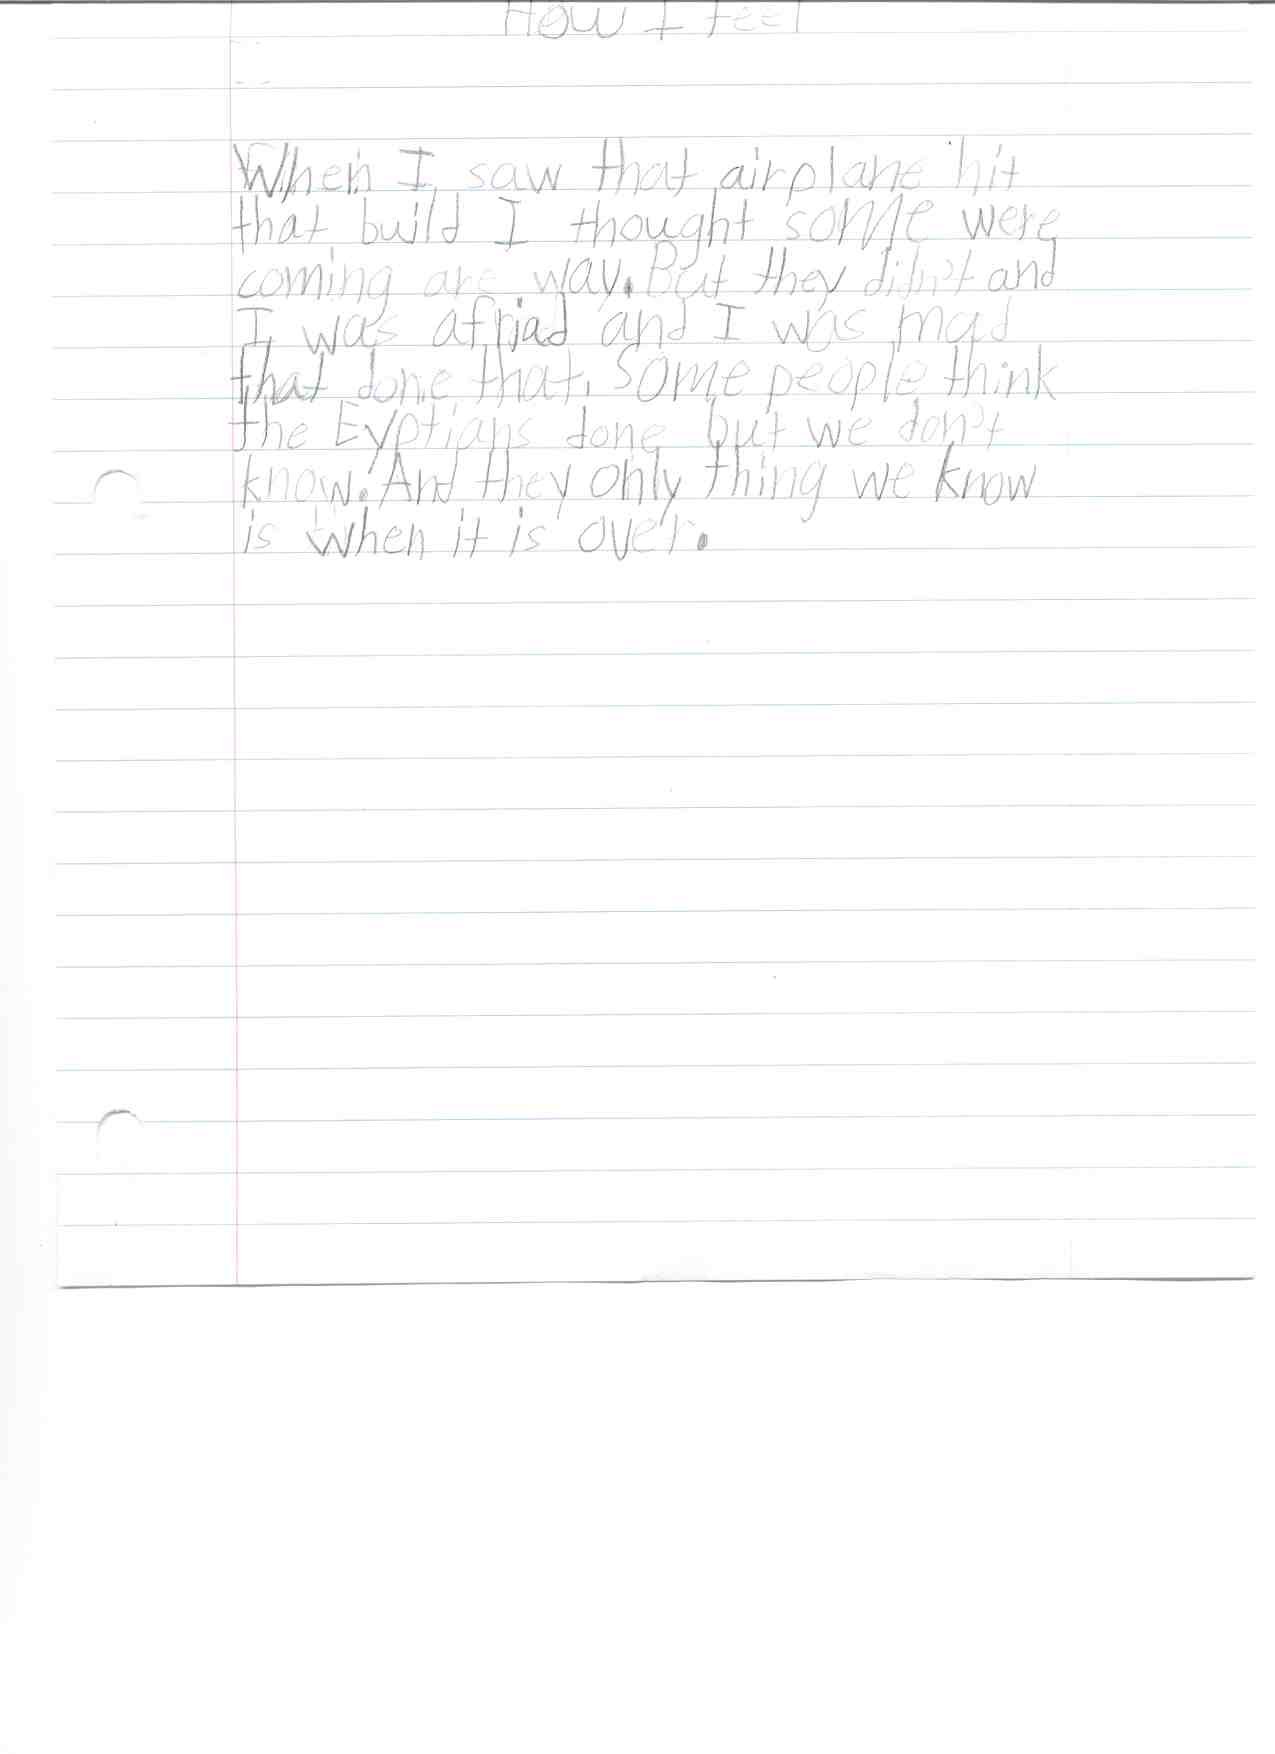 How I feel
When I saw that airplane hit
that build I thought some were
coming are way. But they didn't and
I was afriad and I was mad
that done that. Some people think
the Eyptians done but we don't
know. And they only thing we know
is when it is over.